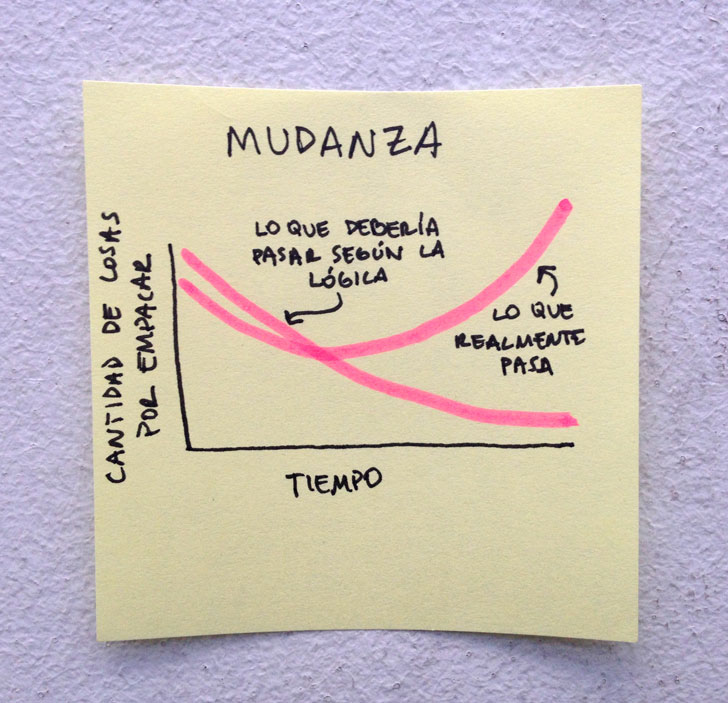 MUDANZA
LO QUE DEBERÍA
PASAR SEGÚN LA
LÓGICA
LO QUE
REALMENTE
PASA
CANTIDAD DE COSAS
POR EMPACAR
TIEMPO